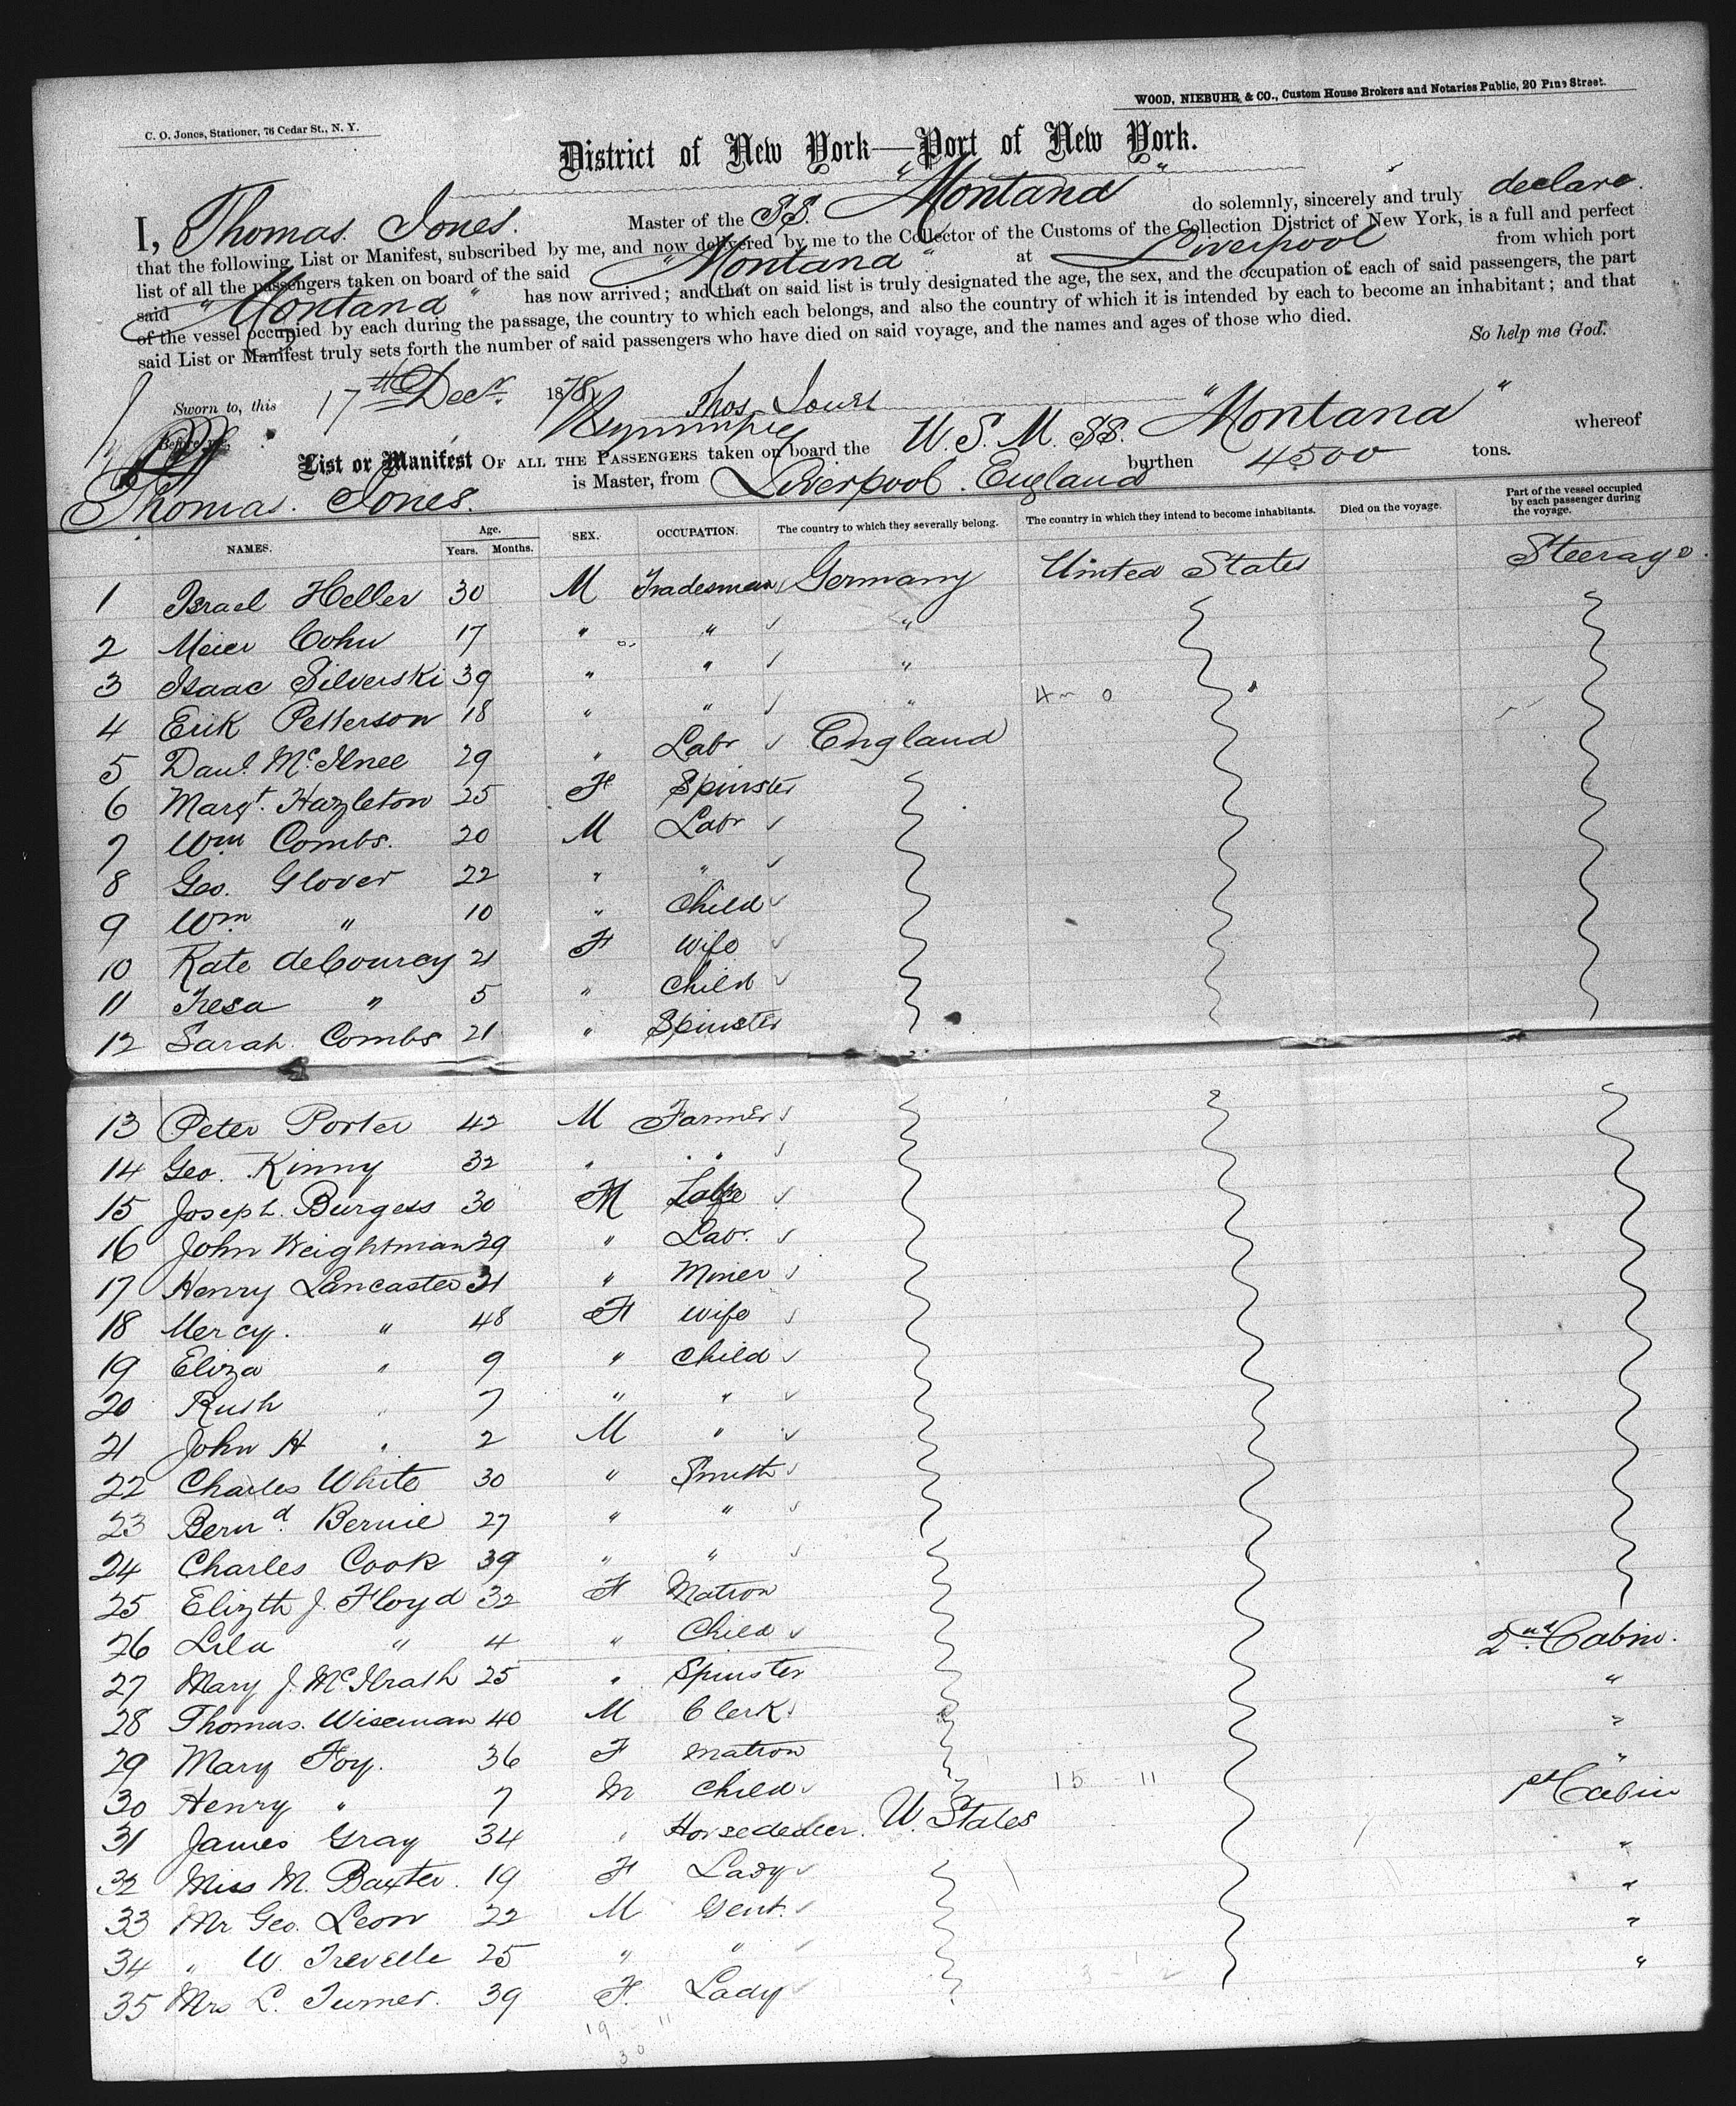 WOOD, NIEBUHR & CO., Custom House Brokers and Notaries Public, 20 Pine Street.
C. O. Jones, Stationer, 76 Cedar St., N. Y.
District of New York—Port of New York.
I, Thomas Jones. Master of the SS. "Montana" do solemnly, sincerely and truly declare.
that the following List or Manifest, subscribed by me, and now delivered by me to the Collector of the Customs of the Collection District of New York, is a full and perfect
list of all the passengers taken on board of the said "Montana" at Liverpool from which port
said "Montana" has now arrived; and that on said list is truly designated the age, the sex, and the occupation of each of said passengers, the part
of the vessel occupied by each during the passage, the country to which each belongs, and also the country of which it is intended by each to become an inhabitant; and that
said List or Manifest truly sets forth the number of said passengers who have died on said voyage, and the names and ages of those who died.
So help me God.
Sworn to, this 17th Decr. 1878 Thos Jones
Before me,
List or Manifest OF ALL THE PASSENGERS taken on board the U. S. M. SS. "Montana" whereof
Thomas Jones. is Master, from Liverpool. England burthen 4500 tons.
NAMES. Age. Years. Months. SEX. OCCUPATION. The country to which they severally belong. The country in which they intend to become inhabitants. Died on the voyage. Part of the vessel occupied by each passenger during the voyage.
1 Israel Heller 30 M Tradesman Germany United States Steerage.
2 Meier Cohn 17 " " "
3 Isaac Silverski 39 " " "
4 Erik Petterson 18 " " " 4 ~ 0
5 Danl. McIlnee 29 " Labr England
6 Margt. Hazleton 25 F Spinster
7 Wm Combs. 20 M Labr
8 Geo. Glover 22 " "
9 Wm " 10 " Child
10 Kate deCourcy 21 F Wife
11 Tresa " 5 " Child
12 Sarah Combs 21 " Spinster
13 Peter Porter 42 M Farmer
14 Geo. Kinny 32 " "
15 Joseph Burgess 30 M
16 John Weightman 39 " Labr.
17 Henry Lancaster " Miner
18 Mercy. " 48 F Wife
19 Eliza " 9 " Child
20 Rush " 7 " "
21 John H " 2 M "
22 Charles White 30 " Smith
23 Bernd. Bernie 27 " "
24 Charles Cook 39 " "
25 Elizth J. Floyd 32 F Matron
26 Lila " 4 " Child 2nd Cabin.
27 Mary J. McIlrath 25 " Spinster "
28 Thomas. Wiseman 40 M Clerk "
29 Mary Foy. 36 F Matron "
30 Henry " 7 M Child 15 - 11 1st Cabin
31 James Gray 34 " Horsedealer. U. States "
32 Miss M. Baxter. 19 F Lady "
33 Mr Geo. Leon 22 M Gent. "
34 " W. Trevelle 25 " " "
35 Mrs L. Turner. 39 F. Lady
19 - 11
30